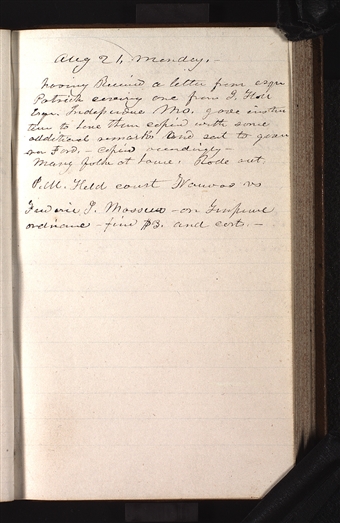 Aug 21, Monday,—
having Received a letter from esqr
Patrick covering one from J. Hall
Esqr. Independence Mo. gave instruc
tion to have them copied with some
additional remarks and sent to gover
nor Ford.— copied accordingly—
Many folks at home. Rode out
P.M. Held court Nauvoo vs
Frederic J. on
ordinance — fine $3. and costs.—